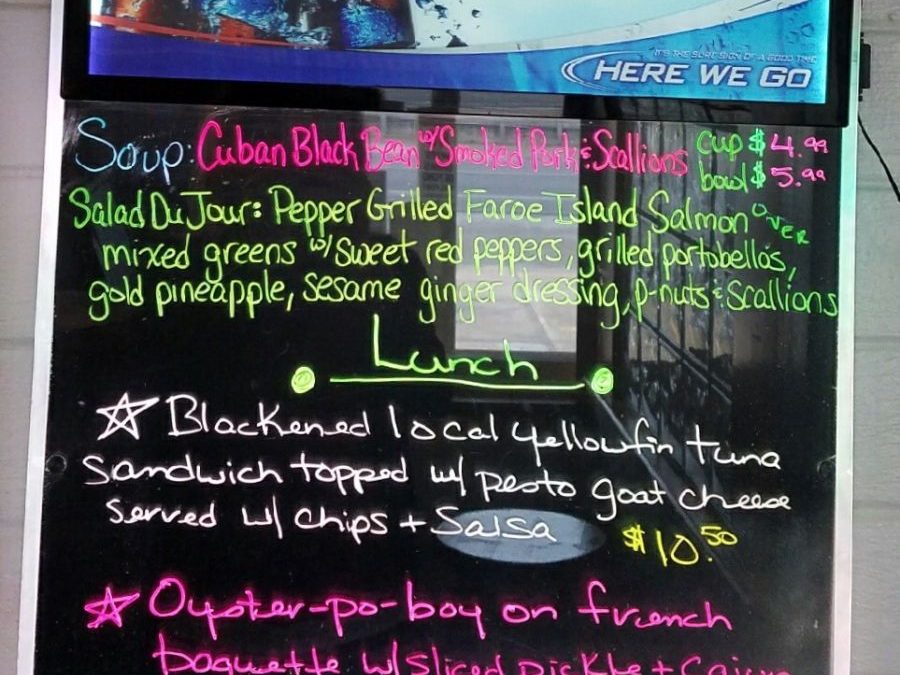 IT'S THE SURE SIGN OF A GOOD TIME
HERE WE GO
Soup: Cuban Black Bean w/ Smoked Pork & Scallions cup $4.99
bowl $5.99
Salad Du Jour: Pepper Grilled Faroe Island Salmon OVER
mixed greens w/ sweet red peppers, grilled portobello's,
gold pineapple, sesame ginger dressing, p-nuts & Scallions
Lunch
Blackened local yellowfin tuna
sandwich topped w/ pesto goat cheese
served w/ chips + Salsa $10.50
Oyster-po-boy on french
baguette w/ sliced pickle + Cajun